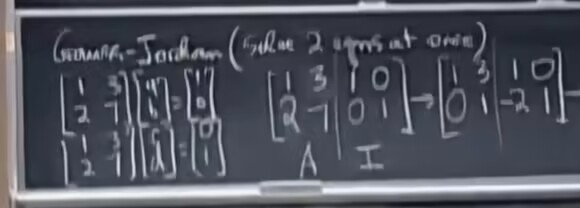 Gauss-Jordan (Solve 2 eqns at once)
[1 3; 2 7] [a; b] = [1; 0] [1 3 | 1 0; 2 7 | 0 1] → [1 3 | 1 0; 0 1 | -2 1] →
[1 3; 2 7] [c; d] = [0; 1] A I